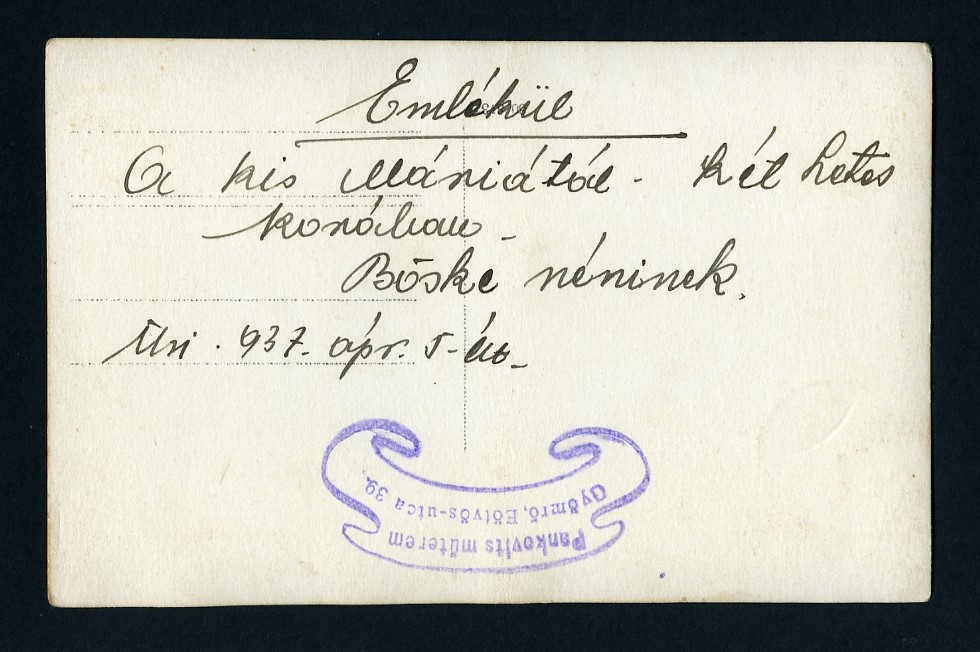 Emlékül
A kis Máriától - két hetes
korában -
Böske néninek.
Üri . 937. ápr. 5-én -
Pankovits műterem
Gyömrő, Eötvös-utca 39.